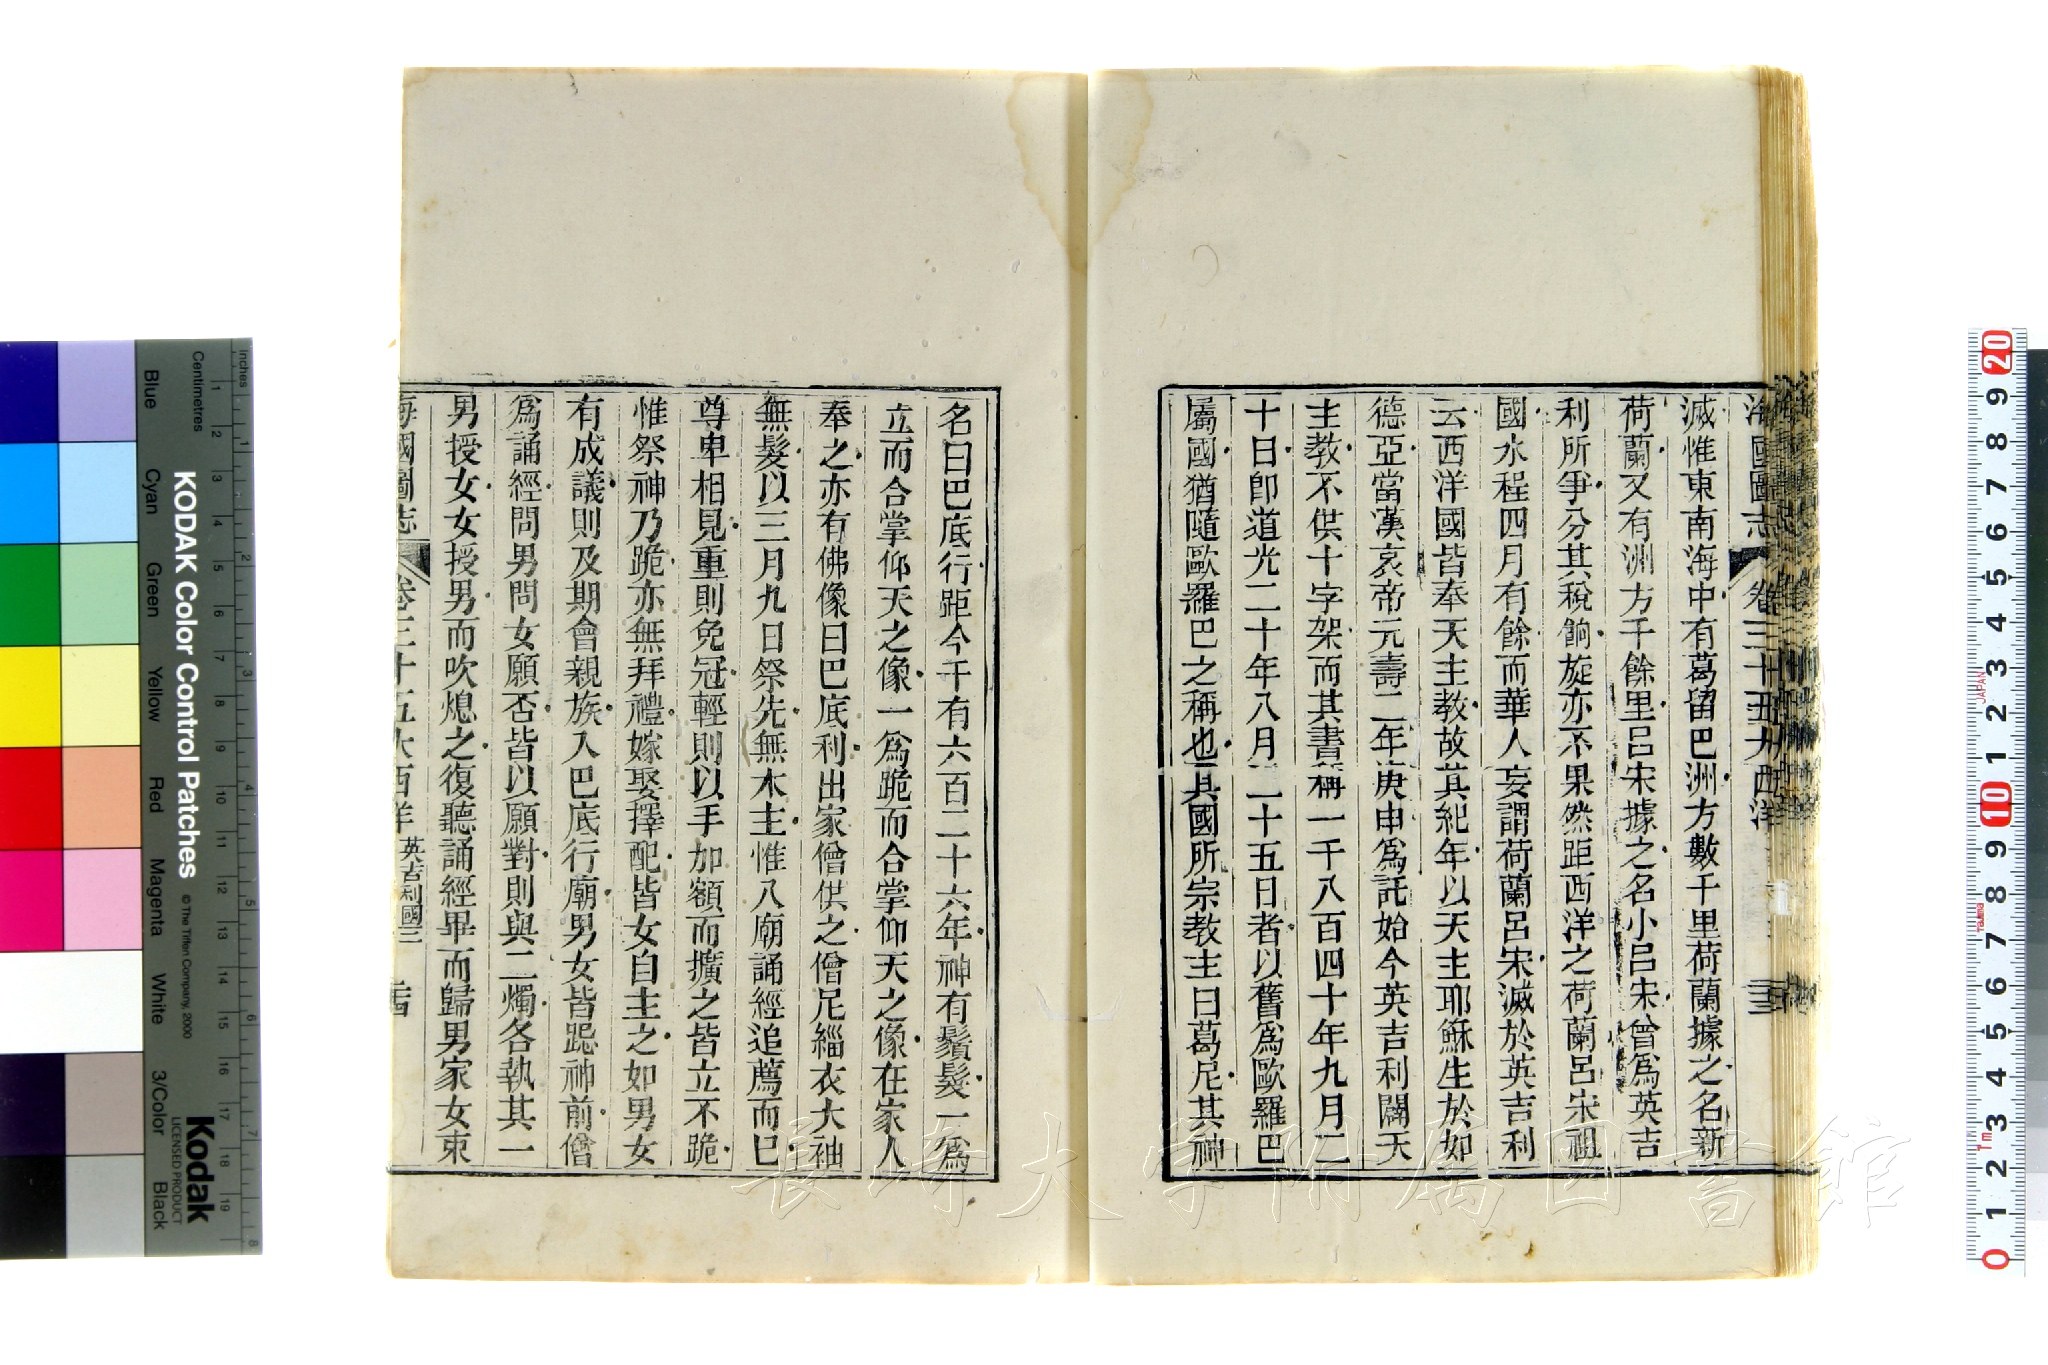 海國圖志 卷三十五大西洋
滅惟東南海中有葛留巴洲方數千里荷蘭據之名新
荷蘭又有洲方千餘里呂宋據之名小呂宋曾爲英吉
利所爭分其稅餉旋亦不果然距西洋之荷蘭呂宋祖
國水程四月有餘而華人妄謂荷蘭呂宋滅於英吉利
云西洋國皆奉天主教故其紀年以天主耶穌生於如
德亞當漢哀帝元壽二年庚申爲託始今英吉利闢天
主教不供十字架而其書稱一千八百四十年九月二
十日卽道光二十年八月二十五日者以舊爲歐羅巴
屬國猶隨歐羅巴之稱也其國所宗教主曰葛尼其神
名曰巴底行距今千有六百二十六年神有鬚髮一爲
立而合掌仰天之像一爲跪而合掌仰天之像在家人
奉之亦有佛像曰巴底利出家僧供之僧尼緇衣大袖
無髮以三月九日祭先無木主惟入廟誦經追薦而巳
尊卑相見重則免冠輕則以手加額而擴之皆立不跪
惟祭神乃跪亦無拜禮嫁娶擇配皆女自主之如男女
有成議則及期會親族入巴底行廟男女皆跽神前僧
爲誦經問男問女願否皆以願對則與二燭各執其一
男授女女授男而吹熄之復聽誦經畢而歸男家女束
海國圖志 卷三十五大西洋 英吉利國三
Kodak
LICENSED PRODUCT
KODAK Color Control Patches
© The Tiffen Company, 2000
Centimetres
Inches
Blue
Cyan
Green
Yellow
Red
Magenta
White
3/Color
Black
1 2 3 4 5 6 7 8 9 10 11 12 13 14 15 16 17 18 19
1 2 3 4 5 6 7 8
20 9 8 7 6 5 4 3 2 1 10 9 8 7 6 5 4 3 2 1 0
JAPAN
長崎大学附属図書館